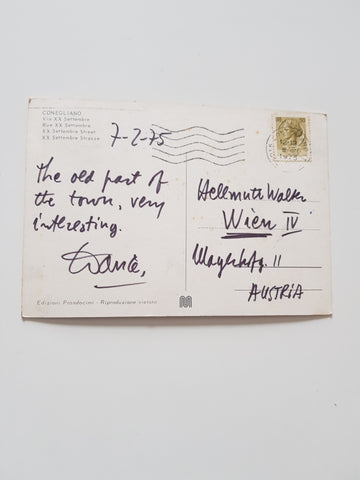 CONEGLIANO
Via XX Settembre
Rue XX Settembre
XX Settembre Street
XX Settembre Strasse
7-2-75
The old part of
the town, very
interesting.
Hellmuth Walter
Wien IV
Mayerhofg. 11
AUSTRIA
Edizioni Prosdocimi - Riproduzione vietata